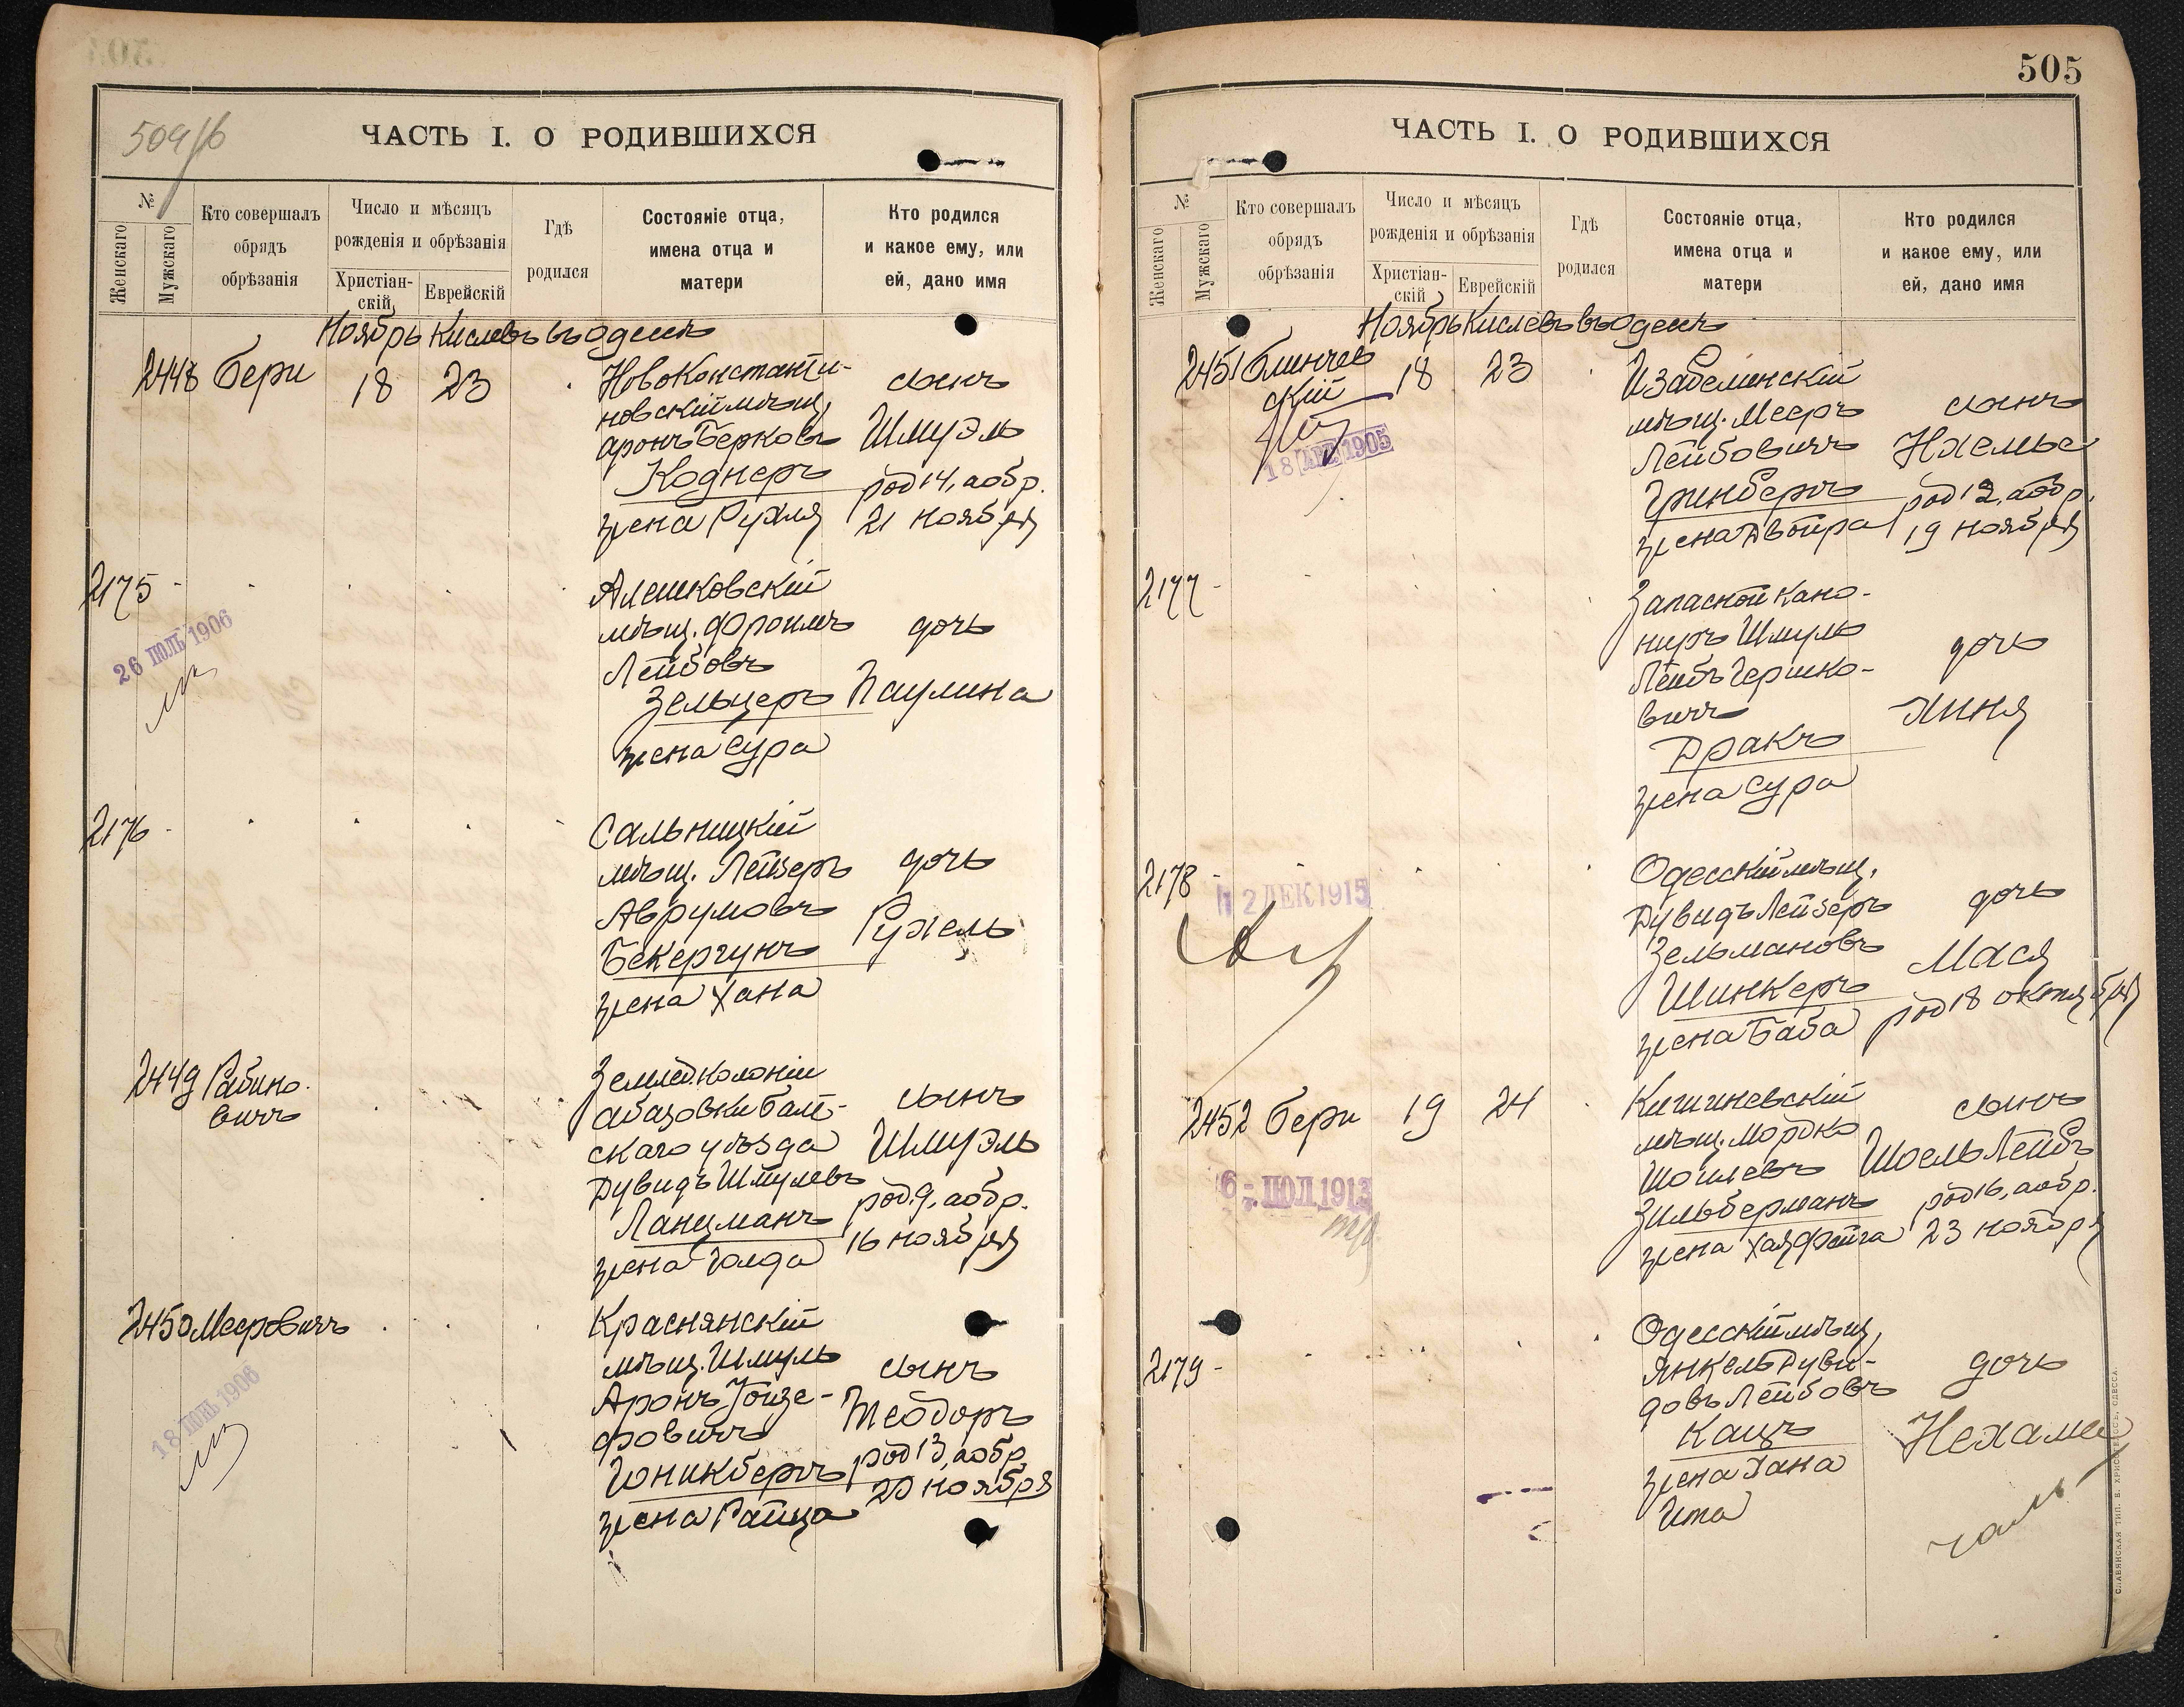 509/б
ЧАСТЬ I. О РОДИВШИХСЯ
№
Женскаго
Мужскаго
Кто совершалъ
обрядъ
обрѣзанія
Число и мѣсяцъ
рожденія и обрѣзанія
Христіан-
скій
Еврейскій
Гдѣ
родился
Состояніе отца,
имена отца и
матери
Кто родился
и какое ему, или
ей, дано имя
Ноябрь Кислевъ въ Одессѣ
2448 Бери 18 23
Новоконстанти-
новскій мѣщ.
Аронъ Берковъ
Коднеръ
жена Рухля
сынъ
Шмуэль
род 14, а обр.
21 ноября
2175
26 ІЮЛЬ 1906
Алешковскій
мѣщ. Фроимъ
Лейбовъ
Зельцеръ
жена Сура
дочь
Паулина
2176
Сальницкій
мѣщ. Лейзеръ
Аврумовъ
Бекергунъ
жена Хана
дочь
Рухель
2449 Рабино-
вичъ
Землед. колоніи
Абазовки Балт-
скаго уѣзда
Дувидъ Шмулевъ
Ланцманъ
жена Голда
сынъ
Шмуэль
род. 9, а обр.
16 ноября
2450 Мееровичъ
18 ІЮНЬ 1906
Краснянскій
мѣщ. Шмуль
Аронъ Іойзе-
фовичъ
Юникбергъ
жена Райца
сынъ
Теодоръ
род 13, а обр.
20 ноября
505
ЧАСТЬ I. О РОДИВШИХСЯ
№
Женскаго
Мужскаго
Кто совершалъ
обрядъ
обрѣзанія
Число и мѣсяцъ
рожденія и обрѣзанія
Христіан-
скій
Еврейскій
Гдѣ
родился
Состояніе отца,
имена отца и
матери
Кто родился
и какое ему, или
ей, дано имя
Ноябрь Кислевъ въ Одессѣ
2451 Блинчев
скій 18 23
1905
Изабелинскій
мѣщ. Мееръ
Лейбовичъ
Гринбергъ
жена Двойра
сынъ
Нхемье
род 12, а обр.
19 ноября
2177
Запасной кано-
ниръ Шмуль
Лейбъ Гершко-
вичъ
Дракъ
жена Сура
дочь
Хиня
2178
12 ДЕК 1915
Одесскій мѣщ.
Дувидъ Лейзеръ
Зельмановъ
Шинкеръ
жена Баба
дочь
Мася
род 18 октября
2452 Бери 19 24
6 - ІЮЛ 1913
Кишиневскій
мѣщ. Мордко
Шоилевъ
Зильберманъ
жена Хая Фейга
сынъ
Шоель Лейбъ
род 16, а обр.
23 ноября
2179
Одесскій мѣщ.
Янкель Дуви-
довъ Лейбовъ
Кацъ
жена Хана
Ита
дочь
Нехаме
СЛАВЯНСКАЯ ТИП. Е. ХРИСОГЕЛОСЪ, ОДЕССА.